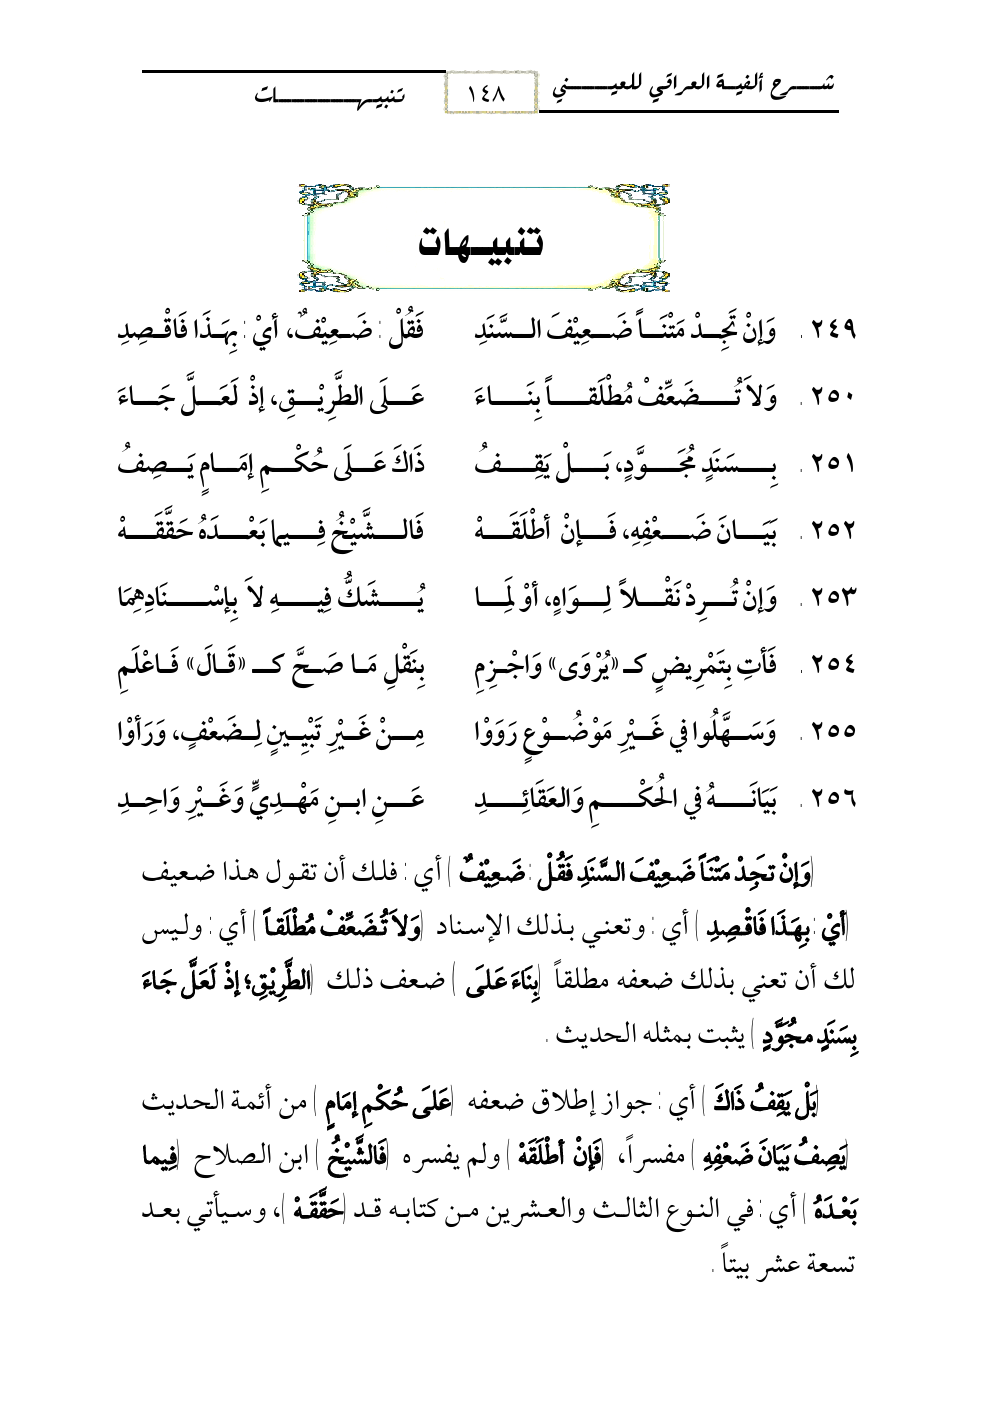 شرح ألفية العراقي للعيني
١٤٨
تنبيهات
تنبيهات
٢٤٩ . وَإنْ تَجِدْ مَتْنَاً ضَعِيْفَ السَّنَدِ فَقُلْ : ضَعِيْفٌ، أيْ : بِهَذَا فَاقْصِدِ
٢٥٠ . وَلاَ تُضَعِّفْ مُطْلَقاً بِنَاءَ عَلَى الطَّرِيْقِ، إذْ لَعَلَّ جَاءَ
٢٥١ . بِسَنَدٍ مُجَوَّدٍ، بَلْ يَقِفُ ذَاكَ عَلَى حُكْمِ إمَامٍ يَصِفُ
٢٥٢ . بَيَانَ ضَعْفِهِ، فَإنْ أطْلَقَهْ فَالشَّيْخُ فِيما بَعْدَهُ حَقَّقَهْ
٢٥٣ . وَإنْ تُرِدْ نَقْلاً لِوَاهٍ، أوْ لِمَا يُشَكُّ فِيهِ لاَ بِإسْنَادِهِمَا
٢٥٤ . فَأتِ بِتَمْرِيضٍ كـ «يُرْوَى» وَاجْزِمِ بِنَقْلِ مَا صَحَّ كـ «قَالَ» فَاعْلَمِ
٢٥٥ . وَسَهَّلُوا في غَيْرِ مَوْضُوْعٍ رَوَوْا مِنْ غَيْرِ تَبْيِينٍ لِضَعْفٍ، وَرَأوْا
٢٥٦ . بَيَانَهُ في الحُكْمِ وَالعَقَائِدِ عَنِ ابنِ مَهْدِيٍّ وَغَيْرِ وَاحِدِ
(وَإنْ تجَِدْ مَتْنَاً ضَعِيْفَ السَّنَدِ فَقُلْ : ضَعِيْفٌ) أي : فلك أن تقول هذا ضعيف
(أيْ : بِهَذَا فَاقْصِدِ) أي : وتعني بذلك الإسناد (وَلاَ تُضَعِّفْ مُطْلَقاً) أي : وليس
لك أن تعني بذلك ضعفه مطلقاً (بِنَاءَ عَلَى) ضعف ذلك (الطَّرِيْقِ؛ إذْ لَعَلَّ جَاءَ
بِسَنَدٍ مجُوَّدٍ) يثبت بمثله الحديث .
(بَلْ يَقِفُ ذَاكَ) أي : جواز إطلاق ضعفه (عَلَى حُكْمِ إمَامٍ) من أئمة الحديث
(يَصِفُ بَيَانَ ضَعْفِهِ) مفسراً، (فَإنْ أطْلَقَهْ) ولم يفسره (فَالشَّيْخُ) ابن الصلاح (فِيما
بَعْدَهُ) أي : في النوع الثالث والعشرين من كتابه قد (حَقَّقَهْ)، وسيأتي بعد
تسعة عشر بيتاً .